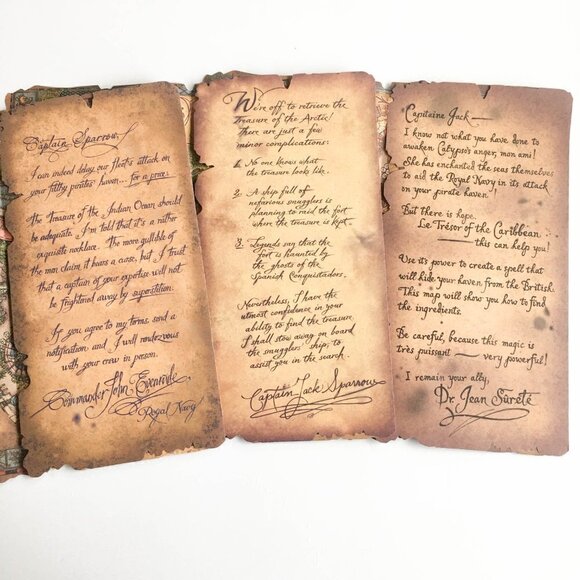 Captain Sparrow,
I can indeed delay our fleet's attack on
your filthy pirates' haven... for a price.
The Treasure of the Indian Ocean should
be adequate. I'm told that it's a rather
exquisite necklace. The more gullible of
the men claim it bears a curse, but I trust
that a captain of your expertise will not
be frightened away by superstition.
If you agree to my terms, send a
notification and I will rendezvous
with your crew in person.
Commander John
Royal Navy
We're off to retrieve the
Treasure of the Arctic!
There are just a few
minor complications:
1. No one knows what
the treasure looks like.
2. A ship full of
nefarious smugglers is
planning to raid the fort
where the treasure is kept.
3. Legends say that the
fort is haunted by
the ghosts of the
Spanish Conquistadors.
Nevertheless, I have the
utmost confidence in your
ability to find the treasure.
I shall stow away on board
the smugglers' ship, to
assist you in the search.
Captain Jack Sparrow
Capitaine Jack—
I know not what you have done to
awaken Calypso's anger, mon ami!
She has enchanted the seas themselves
to aid the Royal Navy in its attack
on your pirate haven!
But there is hope.
Le Trésor of the Caribbean
this can help you!
Use its power to create a spell that
will hide your haven from the British.
This map will show you how to find
the ingredients.
Be careful, because this magic is
très puissant — very powerful!
I remain your ally,
Dr. Jean Sûreté